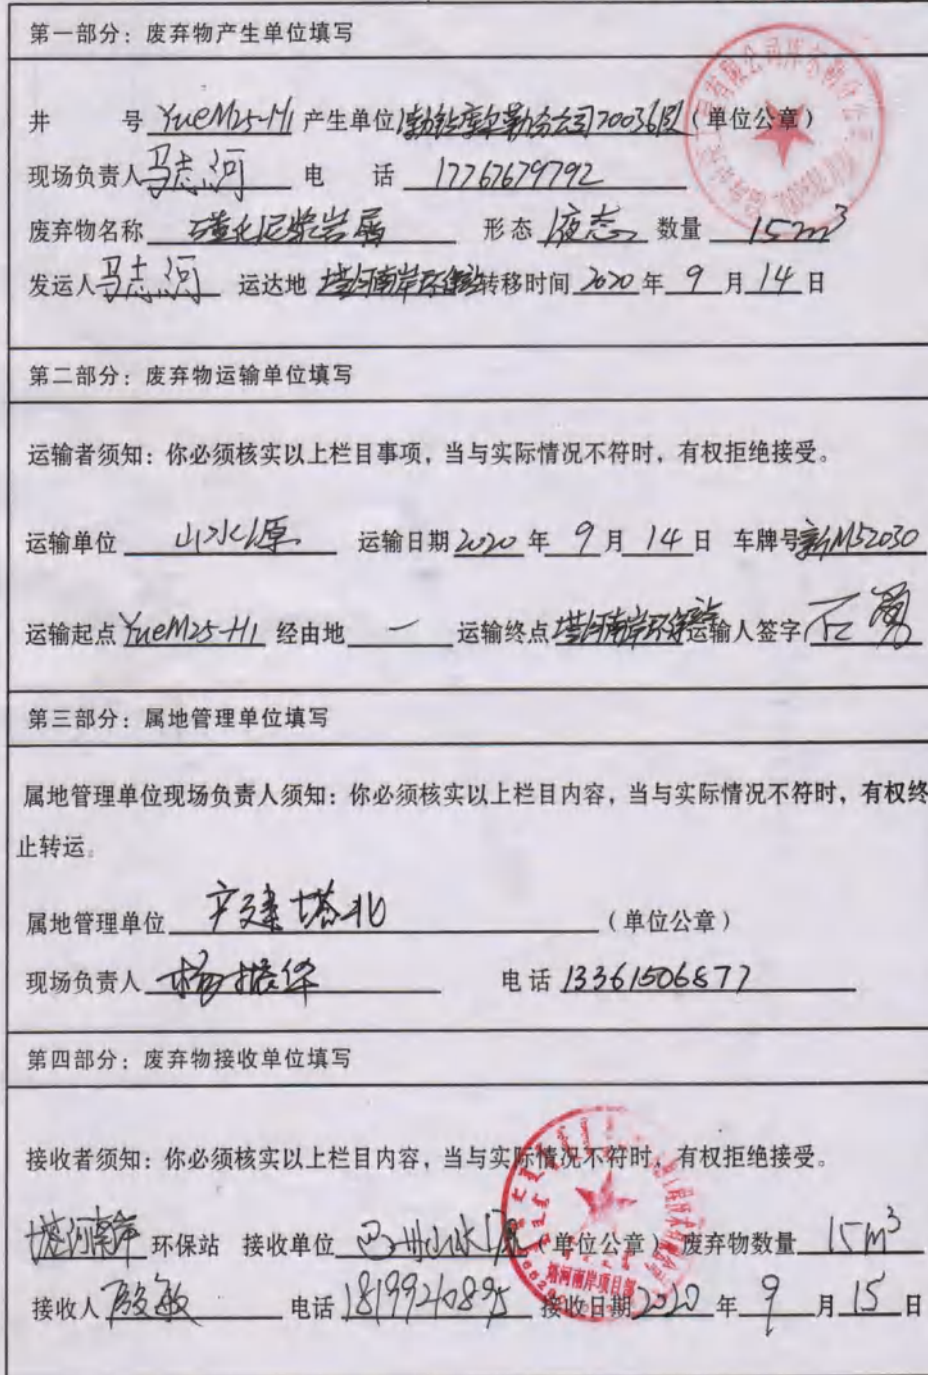 第一部分：废弃物产生单位填写
井 号 YueM25-H1 产生单位 渤钻库尔勒分公司70036队（单位公章）
现场负责人 马志河 电 话 17767679792
废弃物名称 磺化泥浆岩屑 形态 液态 数量 15m³
发运人 马志河 运达地 塔河南岸环保站 转移时间 2020 年 9 月 14 日
第二部分：废弃物运输单位填写
运输者须知：你必须核实以上栏目事项，当与实际情况不符时，有权拒绝接受。
运输单位 山水源 运输日期 2020 年 9 月 14 日 车牌号 新M52030
运输起点 YueM25-H1 经由地 — 运输终点 塔河南岸环保站 运输人签字 石勇
第三部分：属地管理单位填写
属地管理单位现场负责人须知：你必须核实以上栏目内容，当与实际情况不符时，有权终
止转运。
属地管理单位 产建塔北 （单位公章）
现场负责人 杨振华 电话 13361506877
第四部分：废弃物接收单位填写
接收者须知：你必须核实以上栏目内容，当与实际情况不符时，有权拒绝接受。
塔河南岸 环保站 接收单位 巴州山水源（单位公章） 废弃物数量 15m³
塔河南岸项目部
接收人 敏 电话 18199240895 接收日期 2020 年 9 月 15 日